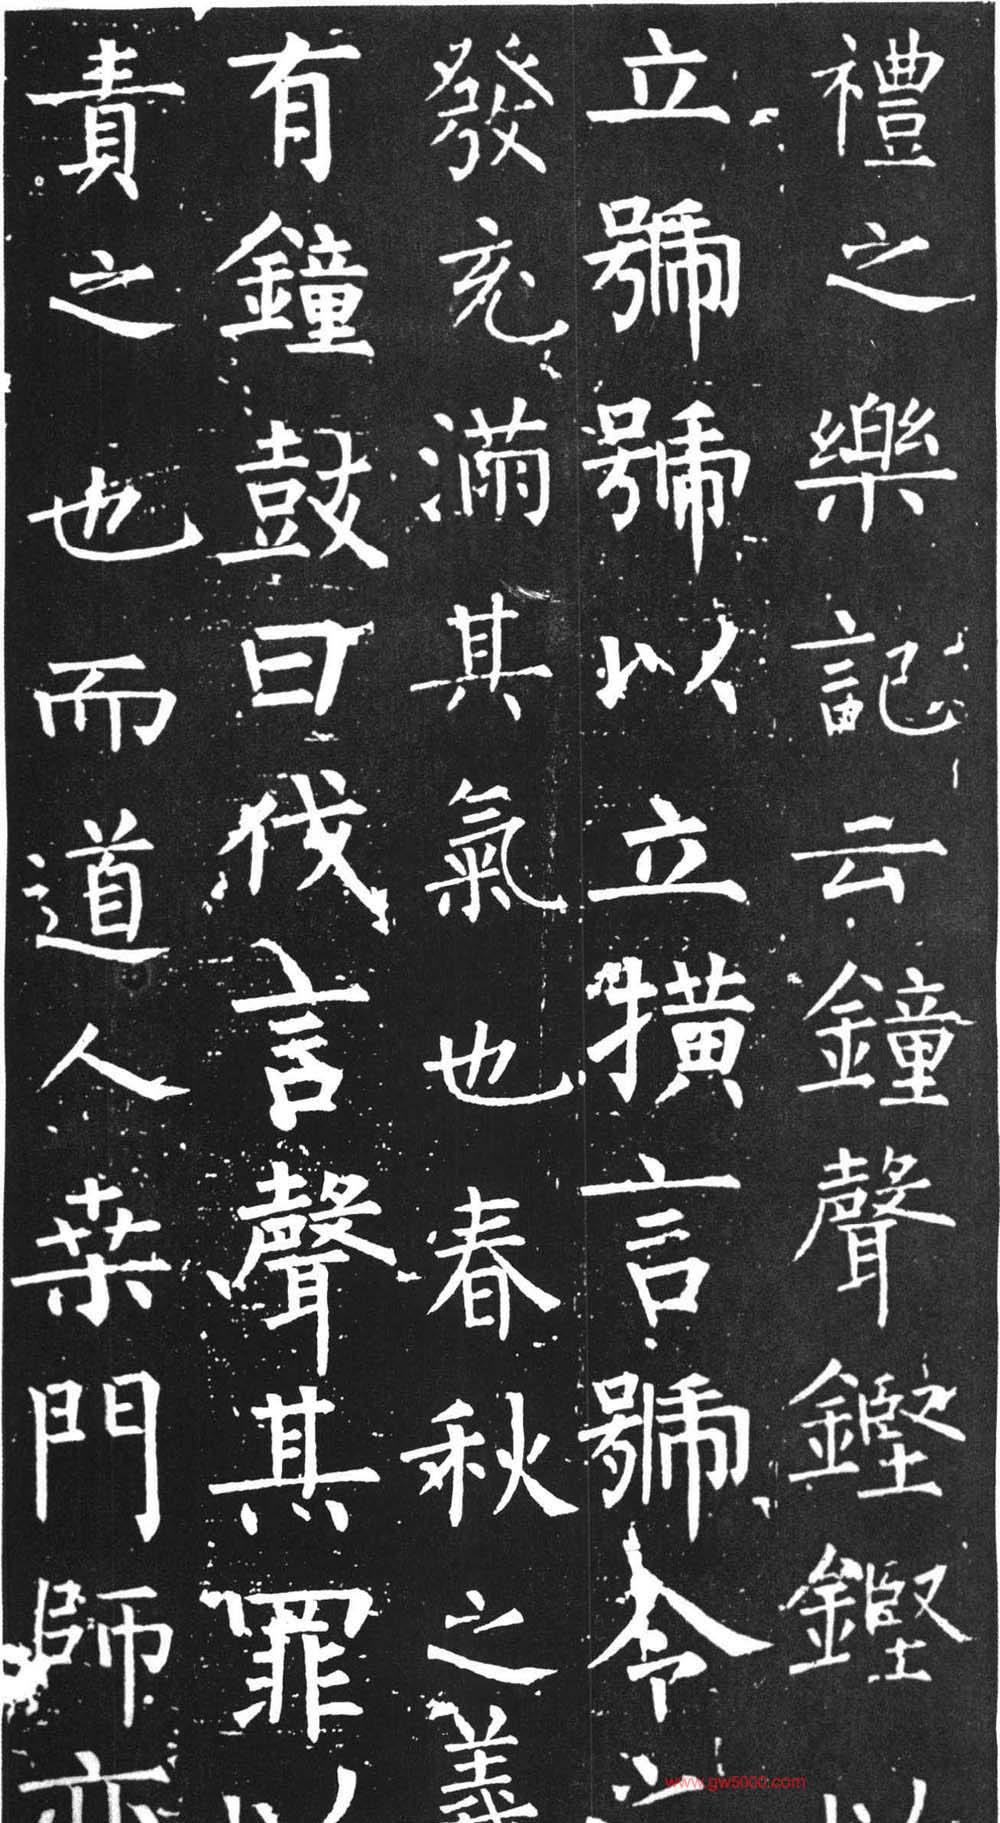 禮之樂記云鐘聲鏗鏗以
立號號以立橫言號令之
發充滿其氣也春秋之義
有鐘鼓曰伐言聲其罪以
責之也而道人桒門師亦
www.gw5000.com